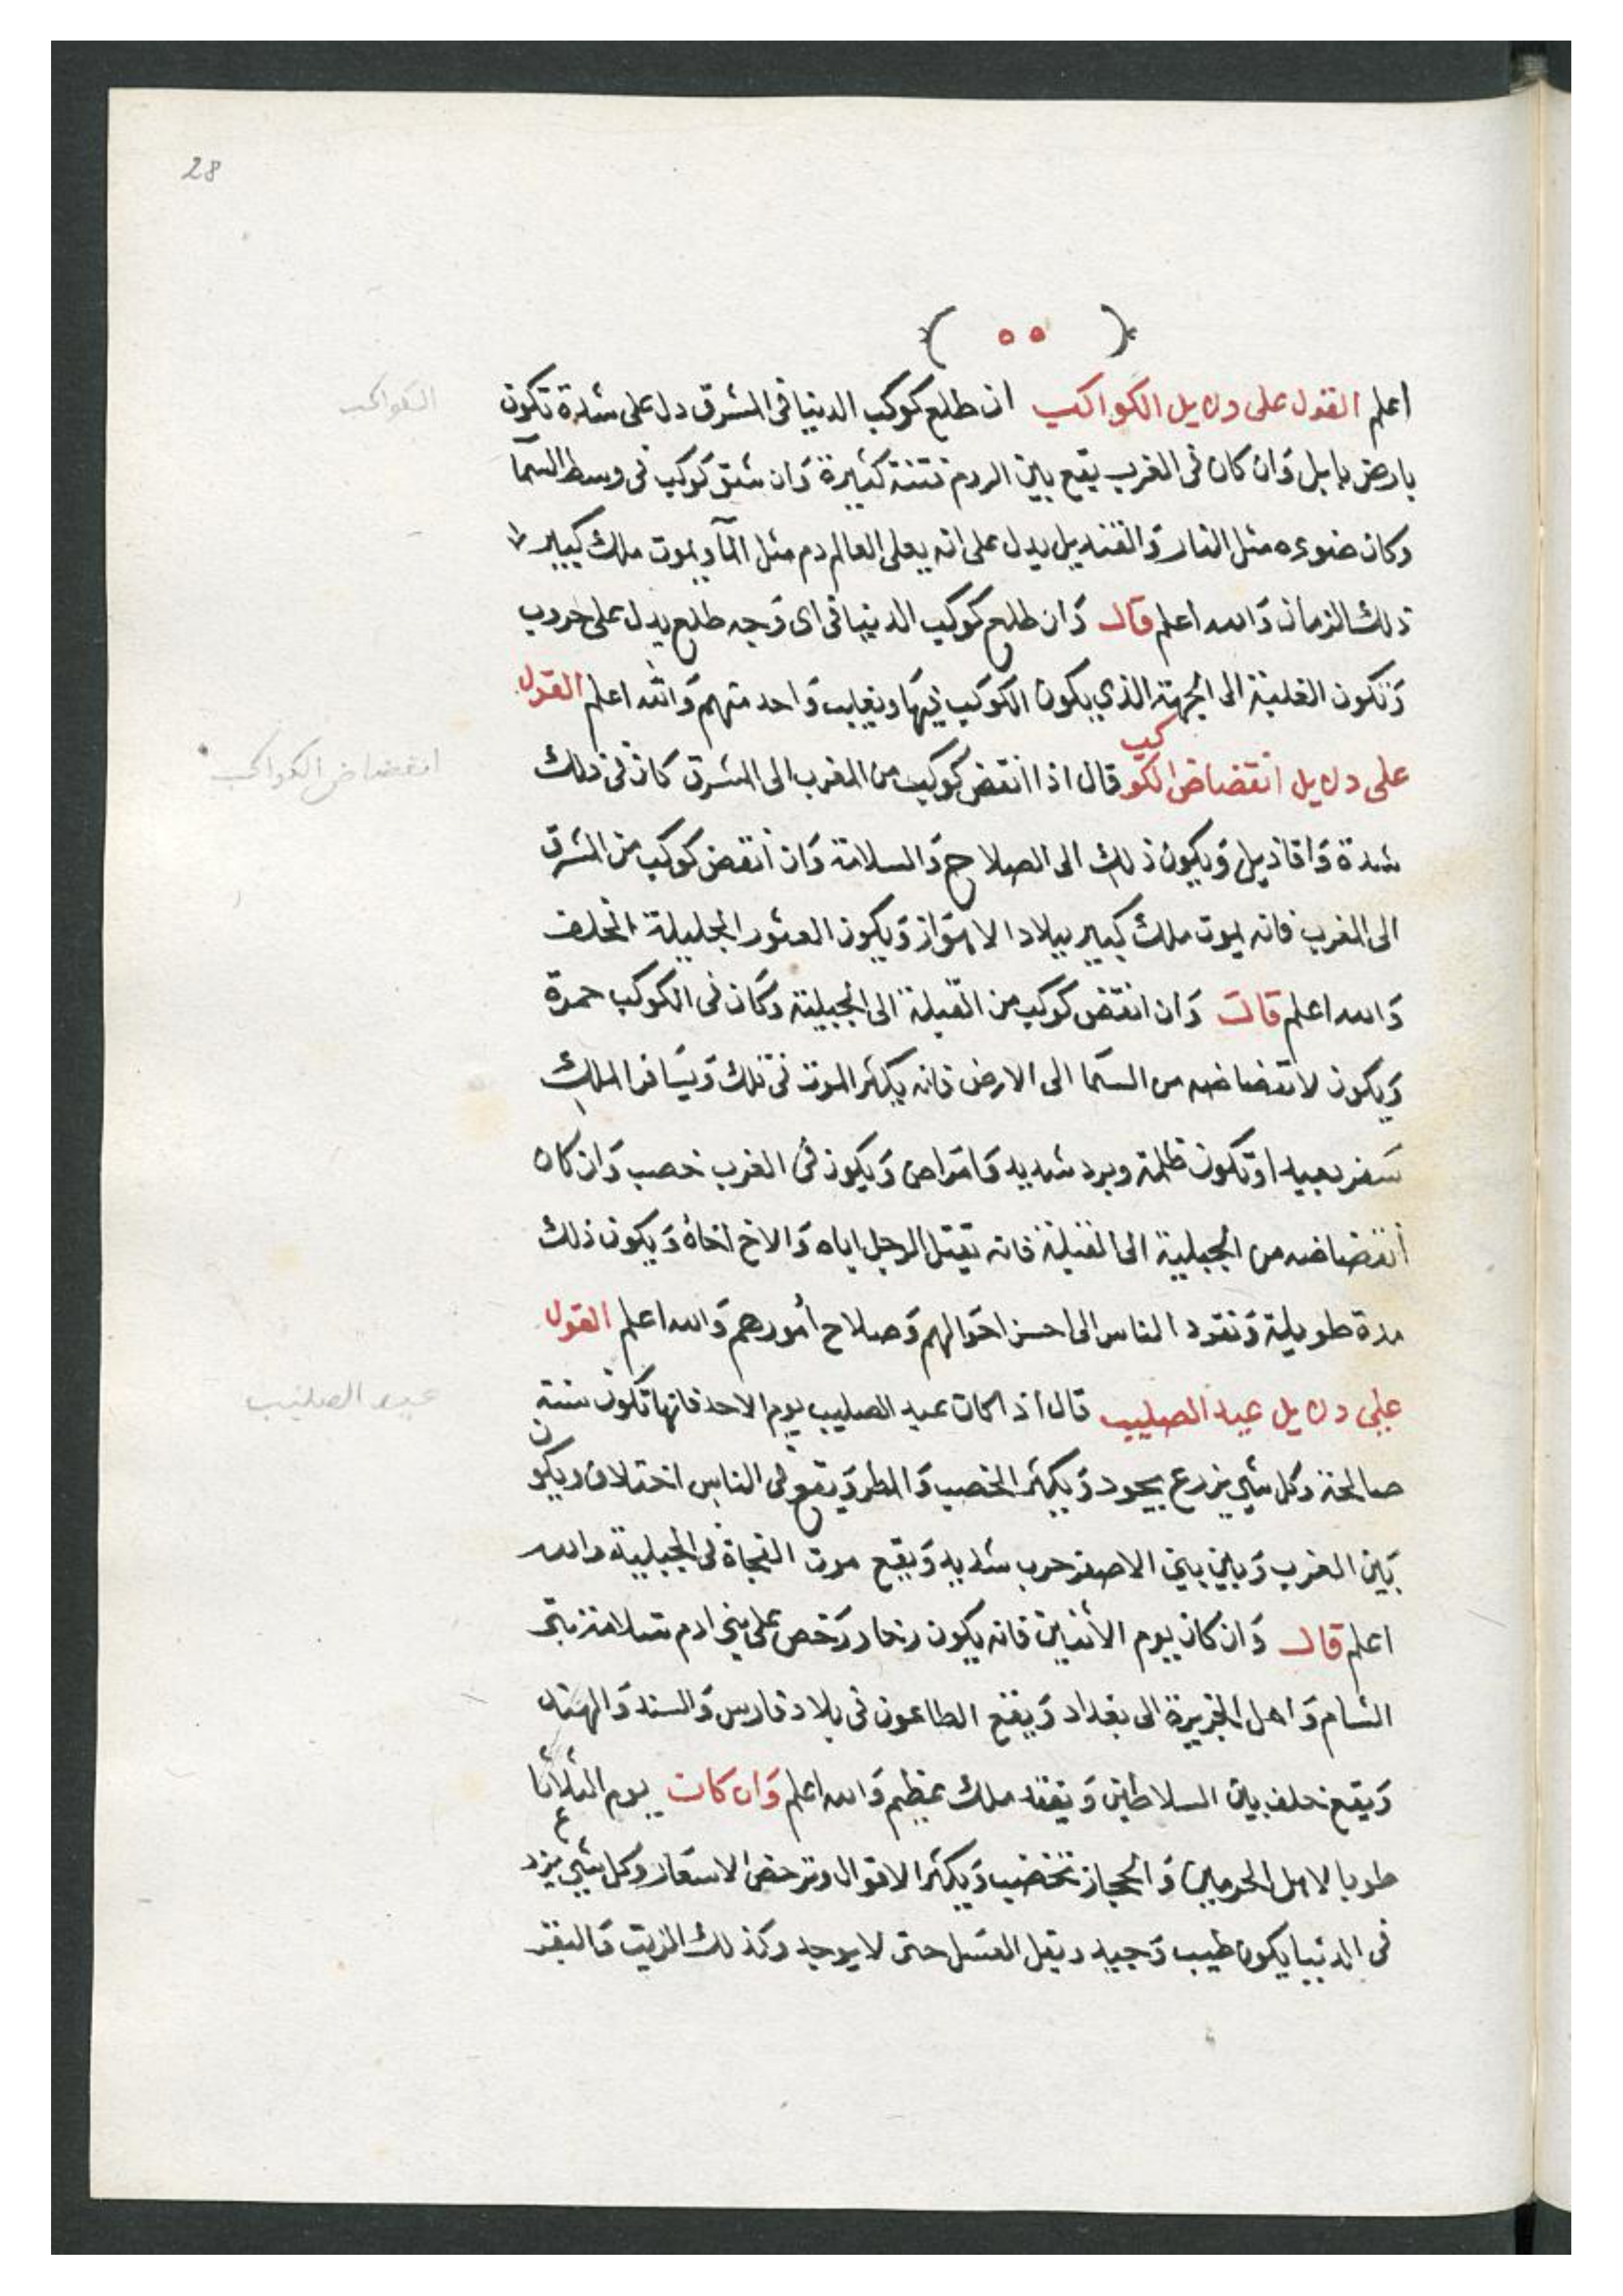 28
( ٥٥ )
اعلم القول على دلايل الكواكب ان طلع كوكب الدنيا فى المشرق دل على شدة تكون
الكواكب
بارض بابل وَان كان فى الغرب يقع بين الروم فتنة كثيرة وَان شق كوكب فى وسط السمآ
وكان ضوءه مثل النار وَالقنديل يدل على انه يعلى العالم دم مثل المآ ويموت ملك كبير
ذلك الزمان وَالله اعلم قال وَان طلع كوكب الدنيا فى اى وَجه طلع يدل على حروب
وَتكون الغلبة الى الجهة الذي يكون الكوكب فيها ويغلب وَاحد منهم وَالله اعلم القول
على دلايل انقضاض الكوكب قال اذا انقض كوكب من المغرب الى المشرق كان فى ذلك
انقضاض الكواكب
شدة وَاقاذيل وَيكون ذلك الى الصلاح وَالسلامة وَان أنقض كوكب من المشرق
الى المغرب فانه يموت ملك كبير ببلاد الاهوَاز وَيكون العشور الجليلة الخلف
وَالله اعلم قال وَان انقض كوكب من القبلة الى الجبلية وكان فى الكوكب حمرة
وَيكون لانقضاضه من السمَا الى الارض فانه يكثر الموت فى تلك وَيسَافر الملك
سَفر بعيد اوتكون ظلمة وبرد شديد وَامرَاض وَيكون فى الغرب خصب وَان كان
أنقضاضه من الجبلية الى القبلة فانه يقتل الرجل اباه وَالاخ اخاهُ وَيكون ذلك
مدة طويلة وَتعود الناس الى احسن احوَالهم وَصلاح أمورهم وَالله اعلم القول
على دلايل عيد الصليب قال اذا كان عيد الصليب يوم الاحد فانها تكون سنة
عيد الصليب
صالحة وكل شي يزرع يجود وَيكثر الخصب وَالمطر وَيقع فى الناس اختلاف ويكون
بَين العرب وَبين بني الاصفر حرب شديد وَيقع موت الفجاة فى الجبلية والله
اعلم قال وَان كان يوم الأثنين فانه يكون رخا ورَخص على بني ادم
الشام وَاهل الجزيرة الى بغداد وَيقع الطاعون فى بلاد فارس وَالسند وَالهند
وَيقع خلف بين السلاطين وَيفقد ملك عظيم وَالله اعلم وَان كان يوم الثلاثا
طوبا لاهل الحرمين وَالحجاز تخصب وَيكثر الاقوال وترخص الاسعَار وكل شي يزرع
فى الدنيا يكون طيب وَجيد ويقل العسَل حتى لا يوجد وكذلك الزيت وَالبقر